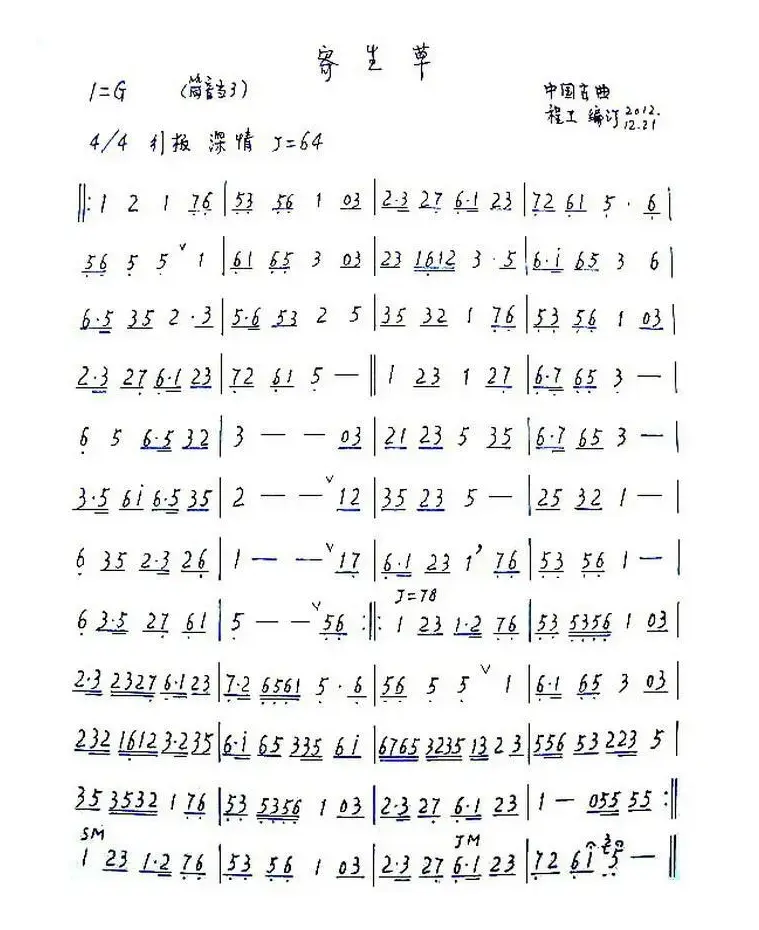 寄生草
1=G (筒音当3) 中国古曲
程工 编订 2012.12.21
4/4 引板 深情 J=64
‖: 1 2 1 76 | 53 56 1 03 | 2·3 27 6·1 23 | 72 61 5 · 6 |
56 5 5 ˅ 1 | 61 65 3 03 | 23 1612 3 · 5 | 6·i 65 3 6 |
6·5 35 2 · 3 | 5·6 53 2 5 | 35 32 1 76 | 53 56 1 03 |
2·3 27 6·1 23 | 72 61 5 — ‖ 1 23 1 27 | 6·7 65 3 — |
6 5 6·5 32 | 3 — — 03 | 21 23 5 35 | 6·7 65 3 — |
3·5 6i 6·5 35 | 2 — — ˅ 12 | 35 23 5 — | 25 32 1 — |
6 35 2·3 26 | 1 — — ˅ 17 | 6·1 23 1 ’ 76 | 53 56 1 — |
J=78
6 3·5 27 61 | 5 — — ˅ 56 :‖: 1 23 1·2 76 | 53 5356 1 03 |
2·3 2327 6·1 23 | 7·2 6561 5 · 6 | 56 5 5 ˅ 1 | 6·1 65 3 03 |
232 1612 3·235 | 6·i 65 335 6i | 6765 3235 13 2 3 | 556 53 223 5 |
35 3532 1 76 | 53 5356 1 03 | 2·3 27 6·1 23 | 1 — 055 55 :‖
SM JM
1 23 1·2 76 | 53 56 1 03 | 2·3 27 6·1 23 | 72 6i 5 — ‖